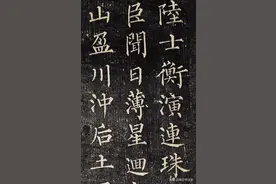 陸士衡演連珠
臣聞日薄星迴
山盈川沖后土